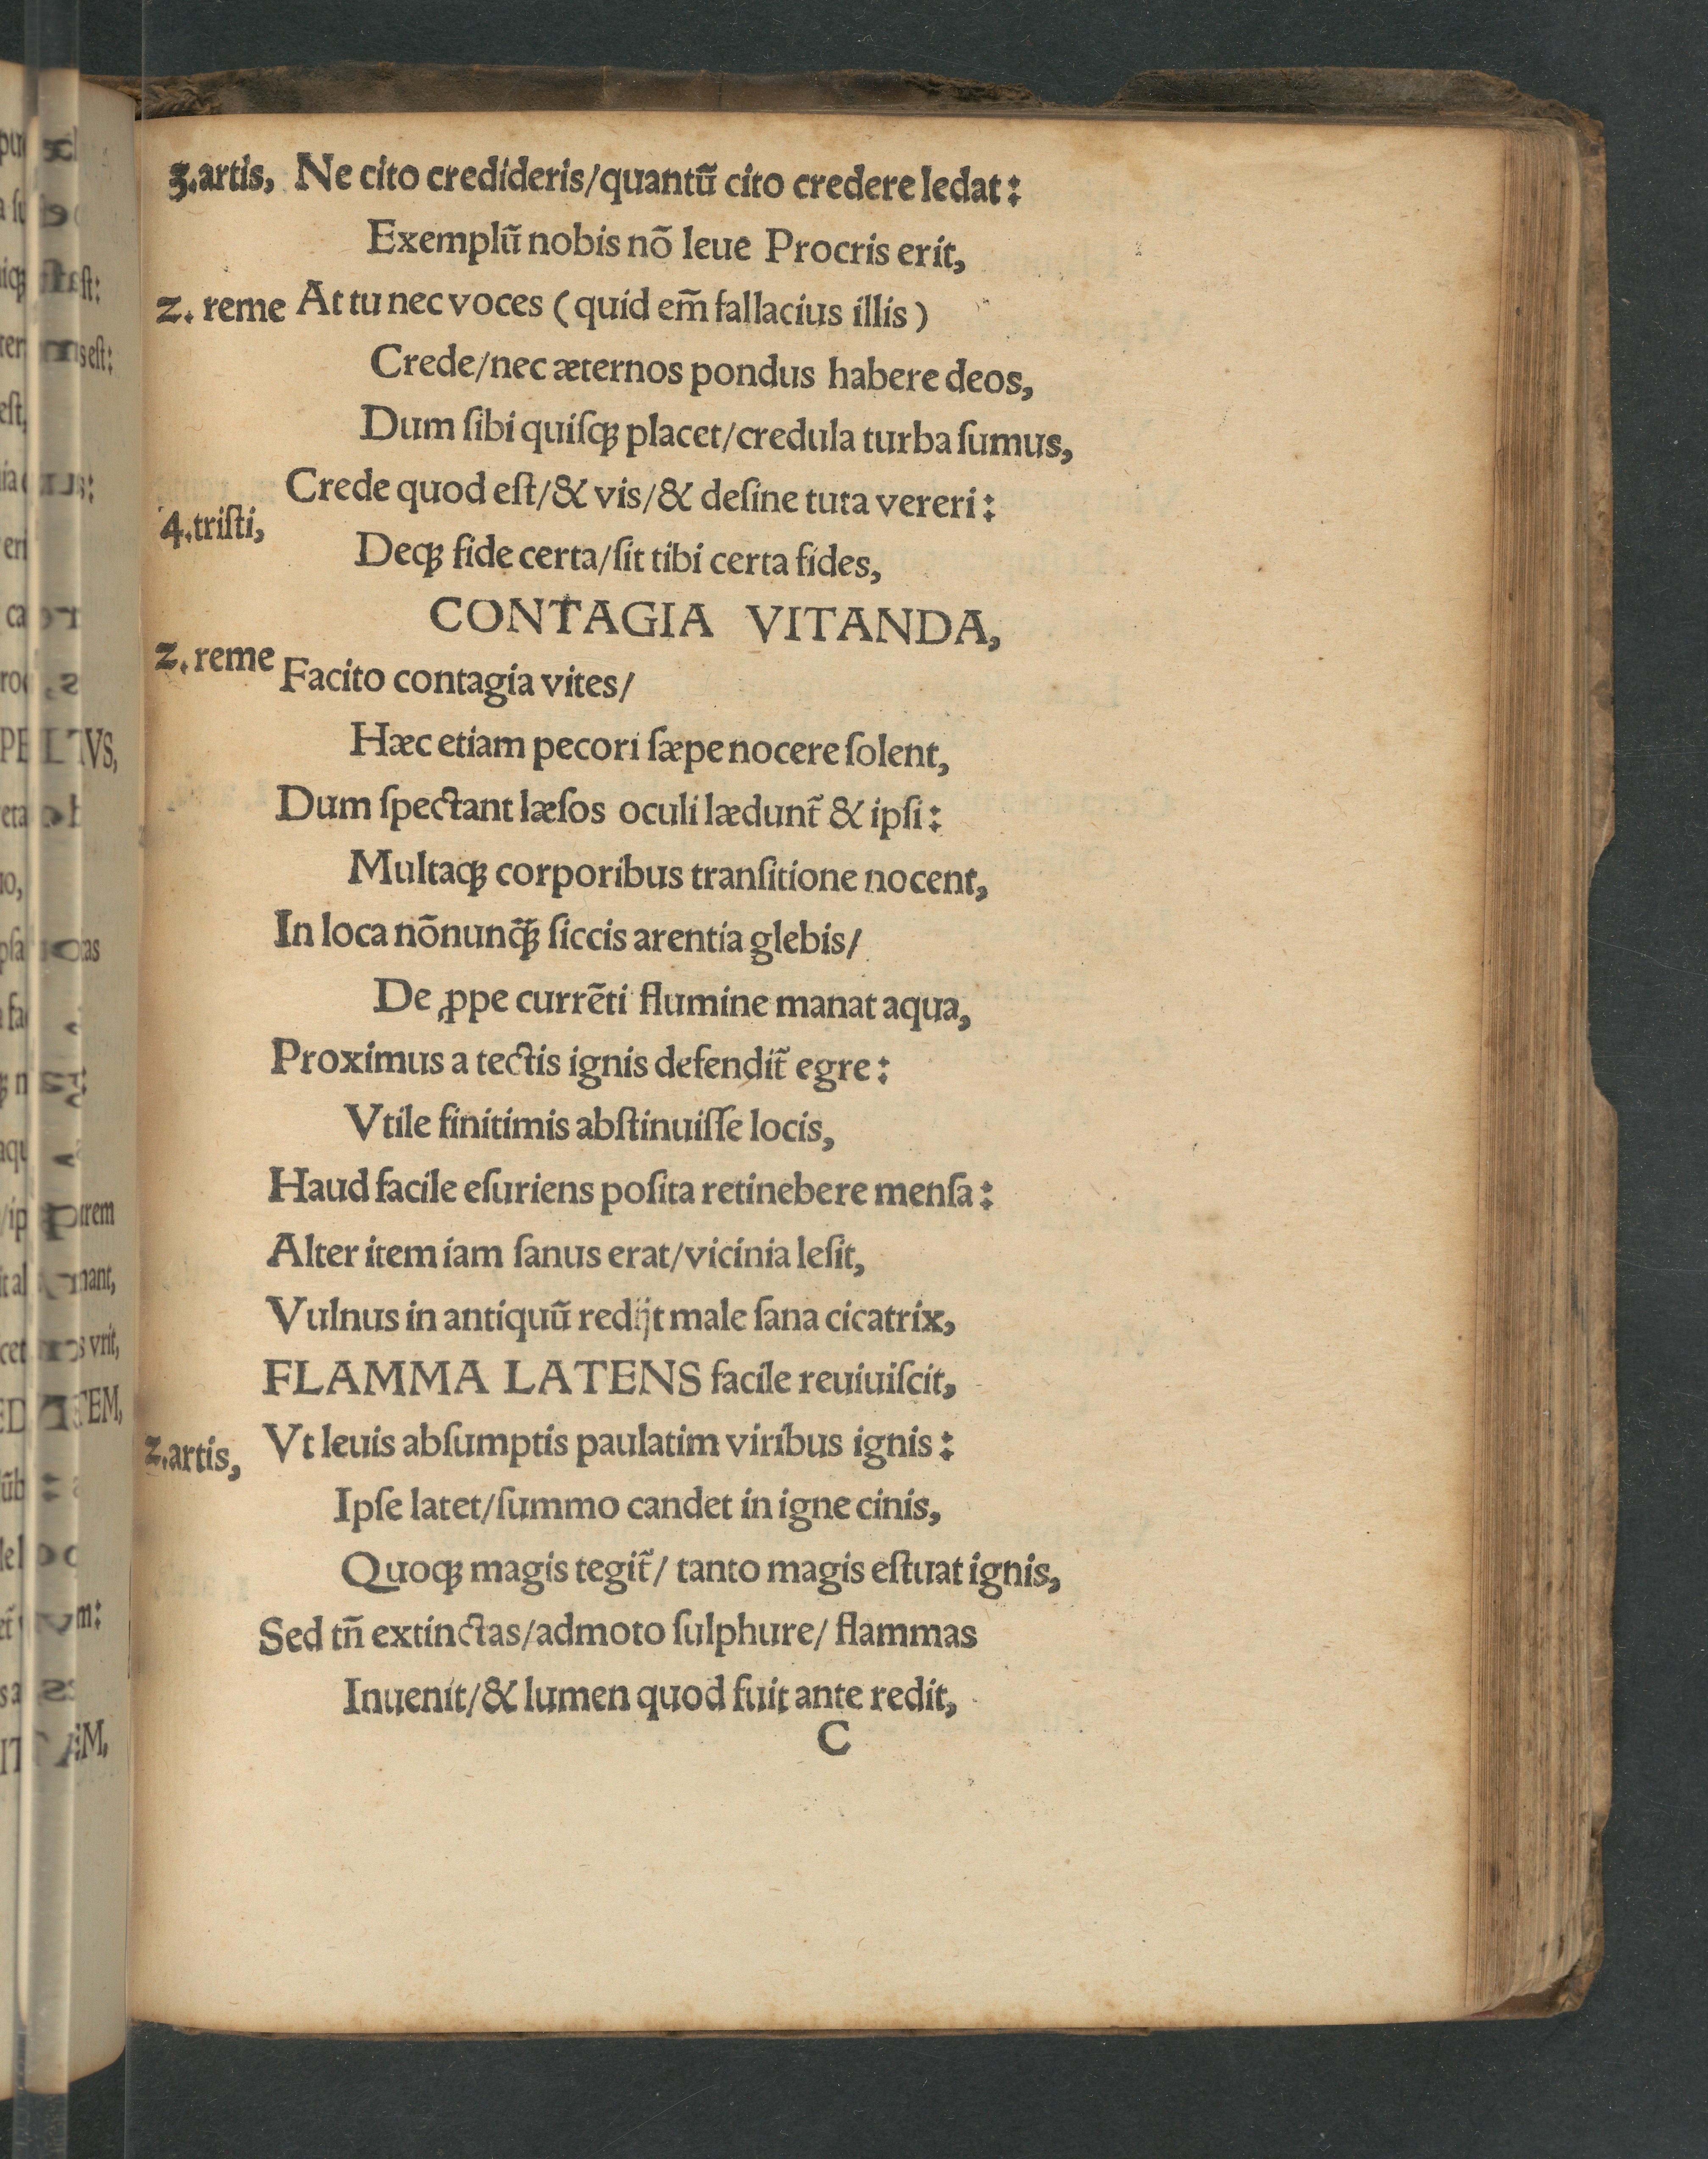 3.artis, Ne cito credideris/quantũ cito credere ledat:
Exemplũ nobis nõ leue Procris erit,
2. reme At tu nec voces (quid em̃ fallacius illis)
Crede/nec æternos pondus habere deos,
Dum ſibi quiſqꝫ placet/credula turba ſumus,
Crede quod eſt/& vis/& deſine tuta vereri:
4.triſti,
Deqꝫ fide certa/ſit tibi certa fides,
CONTAGIA VITANDA,
2. reme Facito contagia vites/
Hæc etiam pecori ſæpe nocere ſolent,
Dum ſpectant læſos oculi lædunt̃ & ipſi:
Multaqꝫ corporibus tranſitione nocent,
In loca nõnunq̃ꝫ ſiccis arentia glebis/
De ꝓpe currẽti flumine manat aqua,
Proximus a tectis ignis defendit̃ egre:
Vtile finitimis abſtinuiſſe locis,
Haud facile eſuriens poſita retinebere menſa:
Alter item iam ſanus erat/vicinia leſit,
Vulnus in antiquũ redijt male ſana cicatrix,
FLAMMA LATENS facile reuiuiſcit,
2.artis, Vt leuis abſumptis paulatim viribus ignis:
Ipſe latet/ſummo candet in igne cinis,
Quoqꝫ magis tegit̃/ tanto magis eſtuat ignis,
Sed tñ extinctas/admoto ſulphure/ flammas
Inuenit/& lumen quod fuit ante redit,
C